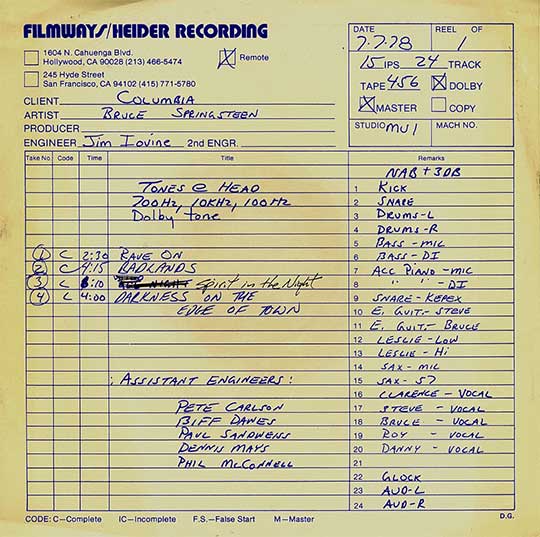 FILMWAYS/HEIDER RECORDING
1604 N. Cahuenga Blvd.
Hollywood, CA 90028 (213) 466-5474
Remote
245 Hyde Street
San Francisco, CA 94102 (415) 771-5780
CLIENT COLUMBIA
ARTIST BRUCE SPRINGSTEEN
PRODUCER
ENGINEER Jim Iovine 2nd ENGR.
DATE 7-7-78 REEL OF 1
15 IPS 24 TRACK
TAPE 456 DOLBY
MASTER COPY
STUDIO MU1 MACH NO.
Take No. Code Time Title Remarks
NAB + 3DB
TONES @ HEAD
700HZ, 10KHZ, 100HZ
Dolby tone
1 C 2:30 RAVE ON
2 C 4:15 BADLANDS
3 C 8:10 Spirit in the Night
4 C 4:00 DARKNESS ON THE
EDGE OF TOWN
: ASSISTANT ENGINEERS :
PETE CARLSON
BIFF DAWES
PAUL SANDWEISS
DENNIS MAYS
PHIL McCONNELL
1 KICK
2 SNARE
3 DRUMS-L
4 DRUMS-R
5 BASS-MIC
6 BASS-DI
7 ACC PIANO-MIC
8 " " -DI
9 SNARE-KEPEX
10 E. GUIT-STEVE
11 E. GUIT.-BRUCE
12 LESLIE-LOW
13 LESLIE-Hi
14 SAX-MIC
15 SAX-57
16 CLARENCE-VOCAL
17 STEVE - VOCAL
18 BRUCE - VOCAL
19 ROY - VOCAL
20 DANNY - VOCAL
21
22 GLOCK
23 AUD-L
24 AUD-R
CODE: C—Complete IC—Incomplete F.S.—False Start M—Master D.G.